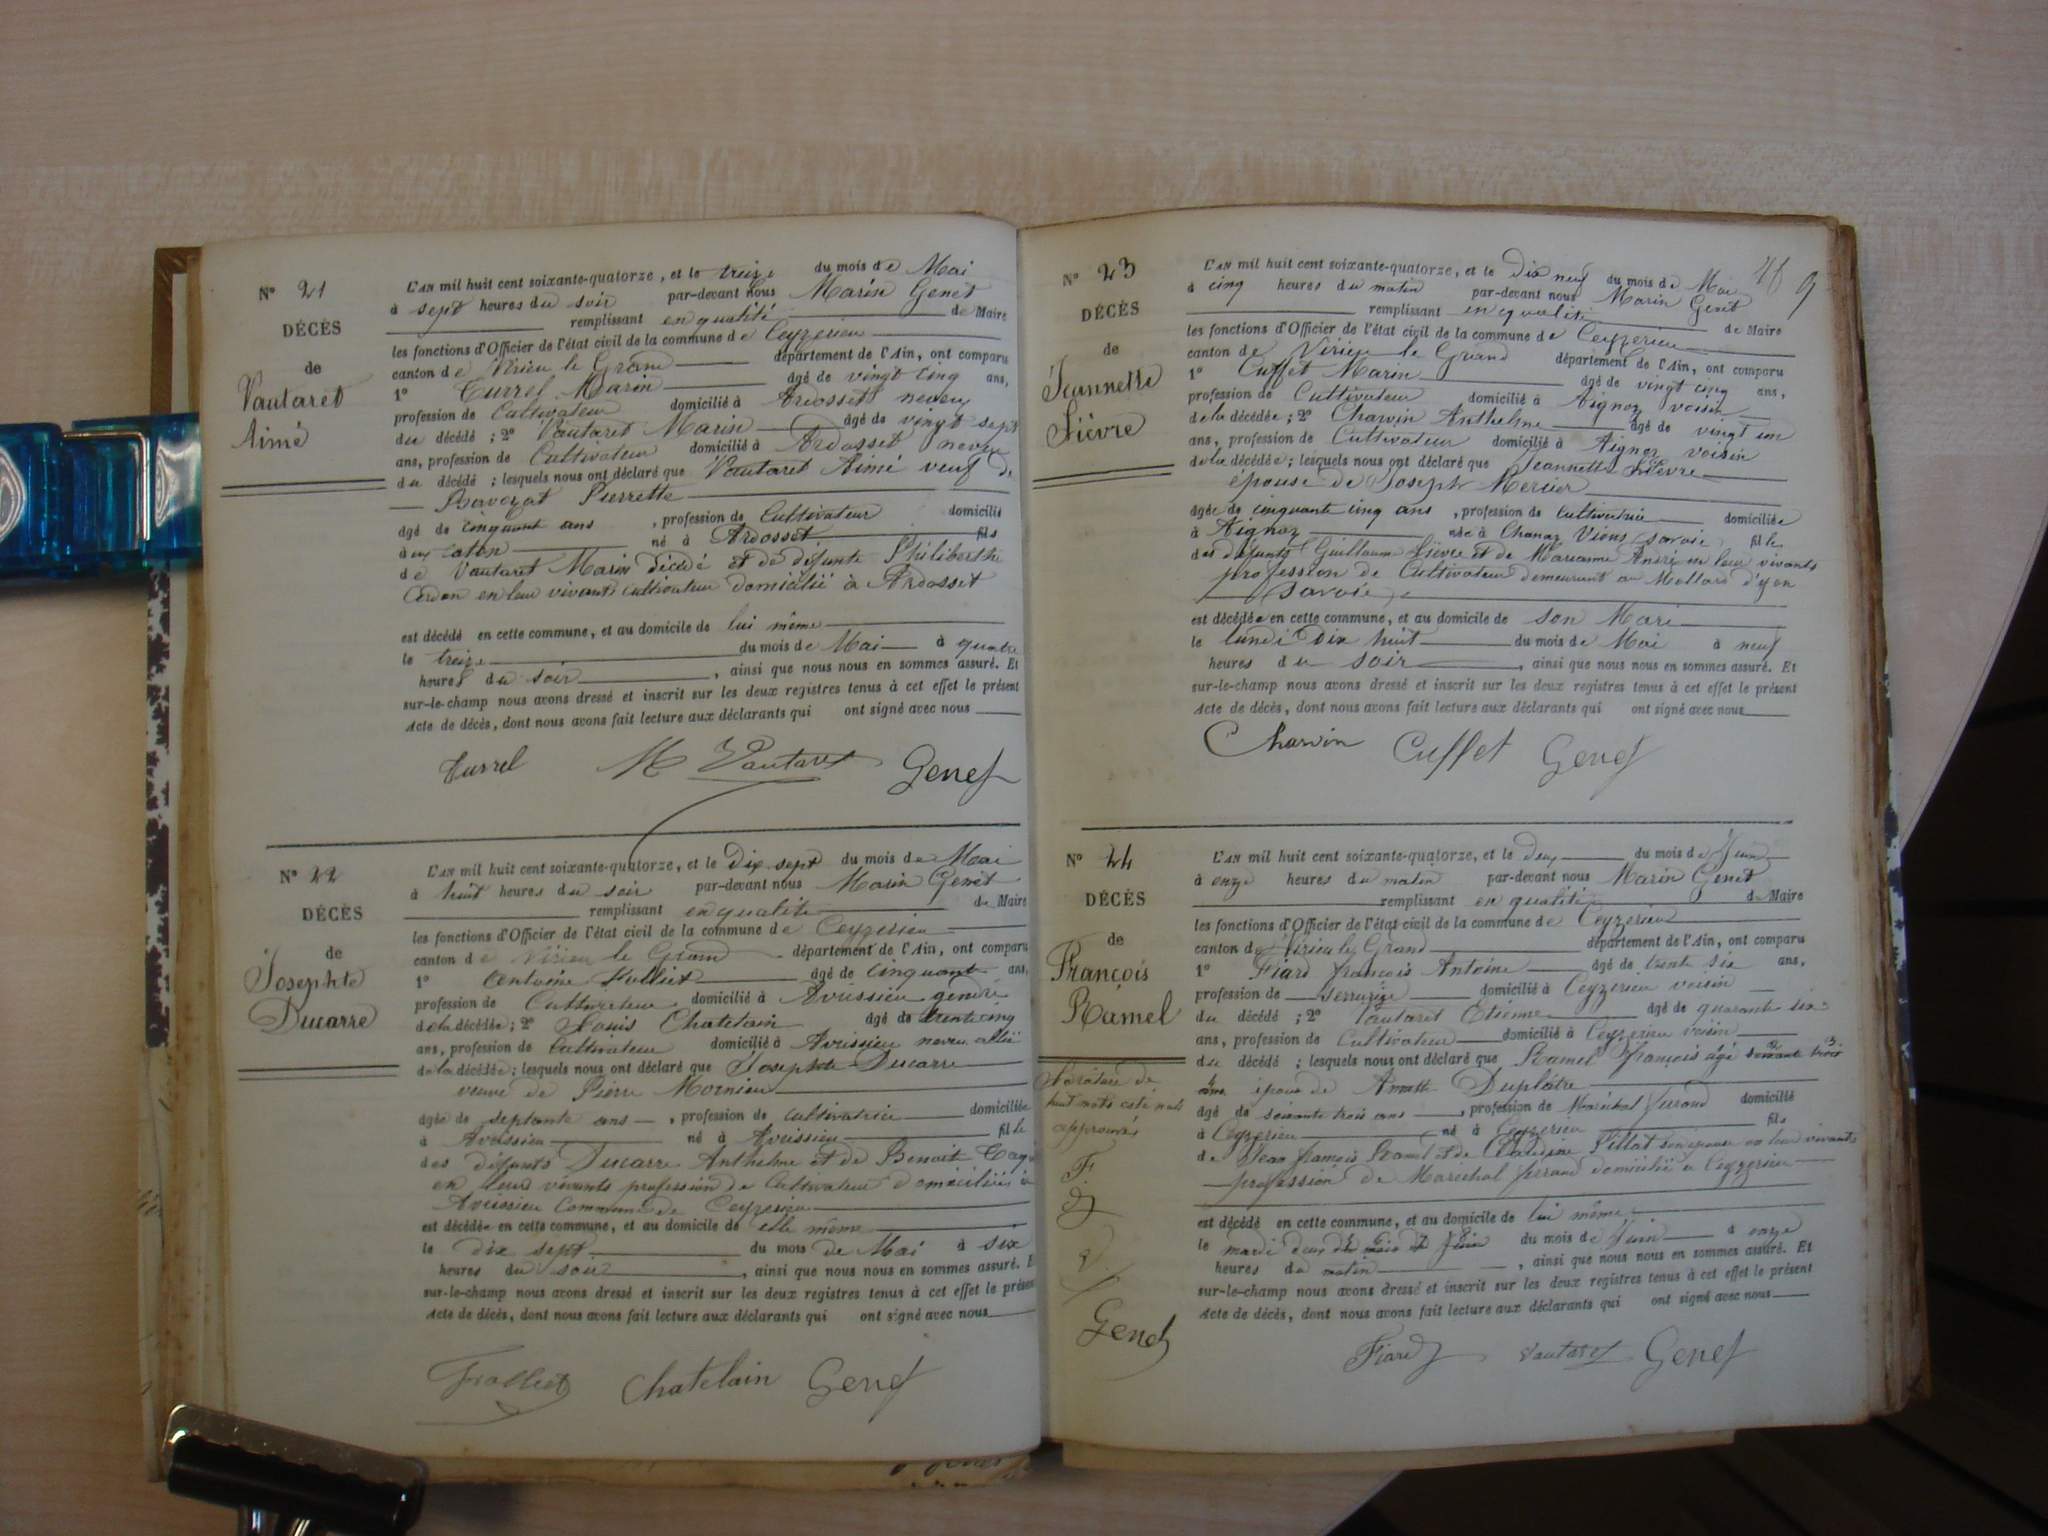 N° 21
DÉCÈS
de
Vautaret
Aimé
L'AN mil huit cent soixante-quatorze, et le treize du mois de Mai
à sept heures du soir par-devant nous Marin Genet
remplissant en qualité de Maire
les fonctions d'Officier de l'état civil de la commune de Ceyzerieu
canton de Virieu le Grand département de l'Ain, ont comparu
1° Currel Marin âgé de vingt cinq ans,
profession de Cultivateur domicilié à Ardosset neveu
du décédé ; 2° Vautaret Marin âgé de vingt sept
ans, profession de Cultivateur domicilié à Ardosset neveu
du décédé ; lesquels nous ont déclaré que Vautaret Aimé veuf de
Pierrette
âgé de cinquante ans , profession de Cultivateur domicilié
né à Ardosset fils
de Vautaret Marin décédé et de défunte Philiberthe
Cordon en leur vivants cultivateur domicilié à Ardosset
est décédé en cette commune, et au domicile de lui même
le treize du mois de Mai à quatre
heures du soir , ainsi que nous nous en sommes assuré. Et
sur-le-champ nous avons dressé et inscrit sur les deux registres tenus à cet effet le présent
Acte de décès, dont nous avons fait lecture aux déclarants qui ont signé avec nous
Currel M Vautaret Genet
N° 22
DÉCÈS
de
Josephte
Ducarre
L'AN mil huit cent soixante-quatorze, et le Dix sept du mois de Mai
à huit heures du soir par-devant nous Marin Genet
remplissant en qualité de Maire
les fonctions d'Officier de l'état civil de la commune de Ceyzerieu
canton de Virieu le Grand département de l'Ain, ont comparu
1° Antoine âgé de cinquante ans,
profession de Cultivateur domicilié à Avrissieu gendre
de la décédée ; 2° Louis Chatelain âgé de trente cinq
ans, profession de Cultivateur domicilié à Avrissieu neveu allié
de la décédée ; lesquels nous ont déclaré que Josephte Ducarre
veuve de Pierre Mornieu
âgée de septante ans , profession de cultivatrice domiciliée
à Avrissieu né à Avrissieu fille
des défunts Ducarre Anthelme et de Benoite
en leurs vivants profession de Cultivateur domiciliés à
Avrissieu Commune de Ceyzerieu
est décédée en cette commune, et au domicile de elle même
le dix sept du mois de Mai à six
heures du soir , ainsi que nous nous en sommes assuré. Et
sur-le-champ nous avons dressé et inscrit sur les deux registres tenus à cet effet le présent
Acte de décès, dont nous avons fait lecture aux déclarants qui ont signé avec nous
Chatelain Genet
N° 23
DÉCÈS
de
Jeannette
Lièvre
L'AN mil huit cent soixante-quatorze, et le Dix neuf du mois de Mai
à cinq heures du matin par-devant nous Marin Genet
remplissant en qualité de Maire
les fonctions d'Officier de l'état civil de la commune de Ceyzerieu
canton de Virieu le Grand département de l'Ain, ont comparu
1° Cuffet Marin âgé de vingt cinq ans,
profession de Cultivateur domicilié à Aignoz voisin
de la décédée ; 2° Charvin Anthelme âgé de vingt un
ans, profession de Cultivateur domicilié à Aignoz voisin
de la décédée ; lesquels nous ont déclaré que Jeannette Lièvre
épouse de Joseph Mercier
âgée de cinquante cinq ans , profession de Cultivatrice domiciliée
à Aignoz née à Chanaz Vions (Savoie) fille
des défunts Guillaume Lièvre et de Marianne André en leur vivants
profession de Cultivateur demeurant au Mollard d'yon
(Savoie)
est décédée en cette commune, et au domicile de son Mari
le lundi Dix huit du mois de Mai à neuf
heures du soir , ainsi que nous nous en sommes assuré. Et
sur-le-champ nous avons dressé et inscrit sur les deux registres tenus à cet effet le présent
Acte de décès, dont nous avons fait lecture aux déclarants qui ont signé avec nous
Charvin Cuffet Genet
N° 24
DÉCÈS
de
François
Ramel
L'AN mil huit cent soixante-quatorze, et le deux du mois de Juin
à onze heures du matin par-devant nous Marin Genet
remplissant en qualité de Maire
les fonctions d'Officier de l'état civil de la commune de Ceyzerieu
canton de Virieu le Grand département de l'Ain, ont comparu
1° Fiard françois Antoine âgé de trente six ans,
profession de serrurier domicilié à Ceyzerieu voisin
du décédé ; 2° Vautaret Etienne âgé de quarante six
ans, profession de Cultivateur domicilié à Ceyzerieu voisin
du décédé ; lesquels nous ont déclaré que Ramel François âgé soixante trois
ans époux de Duplâtre
âgé de soixante trois ans , profession de Maréchal ferrand domicilié
à Ceyzerieu né à Ceyzerieu fils
de Jean françois Ramel et de Claudine Pillat son épouse en leur vivants
profession de Maréchal ferrand domicilié à Ceyzerieu
est décédé en cette commune, et au domicile de lui même
le mardi deux du mois de Juin du mois de Juin à onze
heures du matin , ainsi que nous nous en sommes assuré. Et
sur-le-champ nous avons dressé et inscrit sur les deux registres tenus à cet effet le présent
Acte de décès, dont nous avons fait lecture aux déclarants qui ont signé avec nous
La rature de
huit mots cités nuls
approuvés
F.
V.
Genet
Fiard Vautaret Genet